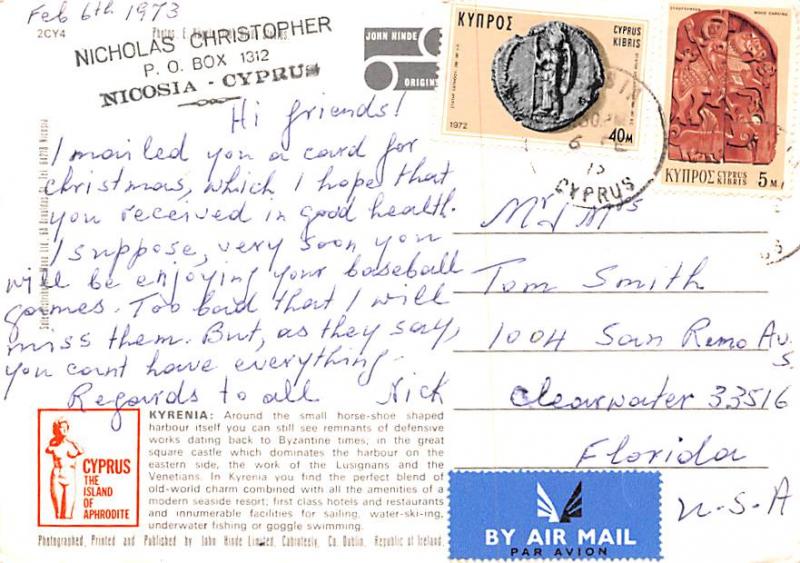 Feb 6th 1973
2CY4
NICHOLAS CHRISTOPHER
P. O. BOX 1312
NICOSIA - CYPRUS
JOHN HINDE
ORIGIN
Hi friends!
I mailed you a card for
christmas, which I hope that
you received in good health.
I suppose, very soon you
will be enjoying your baseball
games. Too bad that I will
miss them. But, as they say,
you cant have everything.
Regards to all Nick
ΚΥΠΡΟΣ CYPRUS
KIBRIS
1972
40M
WOOD CARVING
ΚΥΠΡΟΣ CYPRUS KIBRIS 5M
6
73
CYPRUS
Mr & Mrs
Tom Smith
1004 San Remo Av
S.
Clearwater 33516
Florida
U-S-A
CYPRUS
THE
ISLAND
OF
APHRODITE
KYRENIA: Around the small horse-shoe shaped
harbour itself you can still see remnants of defensive
works dating back to Byzantine times; in the great
square castle which dominates the harbour on the
eastern side, the work of the Lusignans and the
Venetians. In Kyrenia you find the perfect blend of
old-world charm combined with all the amenities of a
modern seaside resort; first class hotels and restaurants
and innumerable facilities for sailing, water-ski-ing,
underwater fishing or goggle swimming.
Photographed, Printed and Published by John Hinde Limited, Cabinteely, Co. Dublin, Republic of Ireland.
BY AIR MAIL
PAR AVION